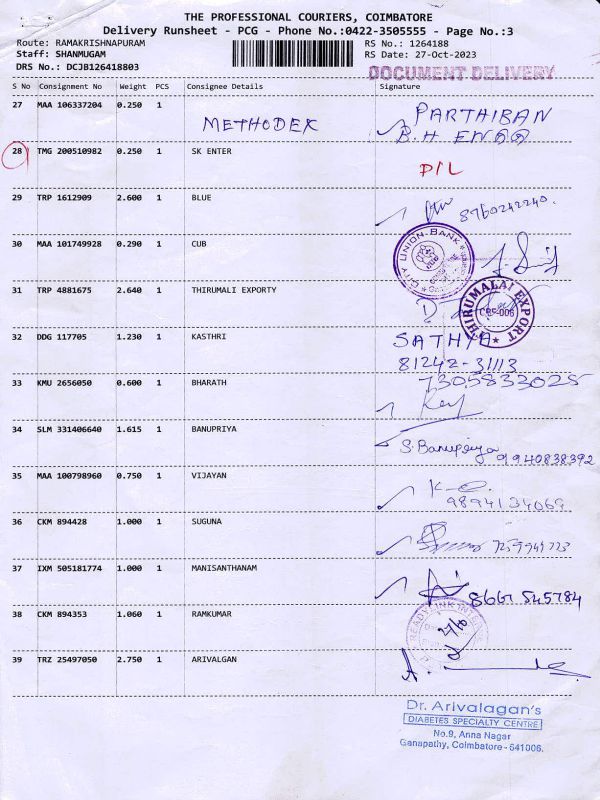 THE PROFESSIONAL COURIERS, COIMBATORE
Delivery Runsheet - PCG - Phone No.:0422-3505555 - Page No.:3
Route: RAMAKRISHNAPURAM RS No.: 1264188
Staff: SHANMUGAM RS Date: 27-Oct-2023
DRS No.: DCJB126418803 DOCUMENT DELIVERY
S No Consignment No Weight PCS Consignee Details Signature
27 MAA 106337204 0.250 1 METHODEX PARTHIBAN
B.H ENGG
28 TMG 200510982 0.250 1 SK ENTER D/L
29 TRP 1612909 2.600 1 BLUE 8760242240.
30 MAA 101749928 0.290 1 CUB
CITY UNION BANK
31 TRP 4881675 2.640 1 THIRUMALI EXPORTY
THIRUMALAI EXPORT
32 DDG 117705 1.230 1 KASTHRI SATHYA
81242-31113
33 KMU 2656050 0.600 1 BHARATH 7305833025
34 SLM 331406640 1.615 1 BANUPRIYA S. Banupriya 9940838392
35 MAA 100798960 0.750 1 VIJAYAN 9894134069
36 CKM 894428 1.000 1 SUGUNA
37 IXM 505181774 1.000 1 MANISANTHANAM 8667 545784
38 CKM 894353 1.060 1 RAMKUMAR
39 TRZ 25497050 2.750 1 ARIVALGAN
Dr. Arivalagan's
DIABETES SPECIALTY CENTRE
No.9, Anna Nagar
Ganapathy, Coimbatore - 641006.